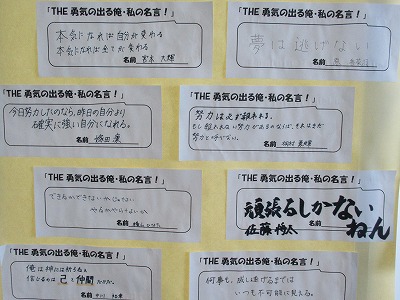 「THE 勇気の出る俺・私の名言！」
本気になれば自分が変わる
本気になれば全てが変わる
名前 宮本 大輔
「THE 勇気の出る俺・私の名言！」
夢は逃げない
名前
「THE 勇気の出る俺・私の名言！」
今日努力したのなら、昨日の自分より
確実に強い自分になれる。
名前
「THE 勇気の出る俺・私の名言！」
努力は必ず報われる。
もし報われない努力があるのならば、それはまだ
努力と呼べない。
名前
「THE 勇気の出る俺・私の名言！」
できるかできないかじゃない
やるかやらないか
名前
「THE 勇気の出る俺・私の名言！」
頑張るしかない
ねん
佐藤
「THE 勇気の出る俺・私の名言！」
俺は神には祈らねぇ
信じるのは己と仲間だけだ。
名前
「THE 勇気の出る俺・私の名言！」
何事も、成し遂げるまでは
いつも不可能に見える。